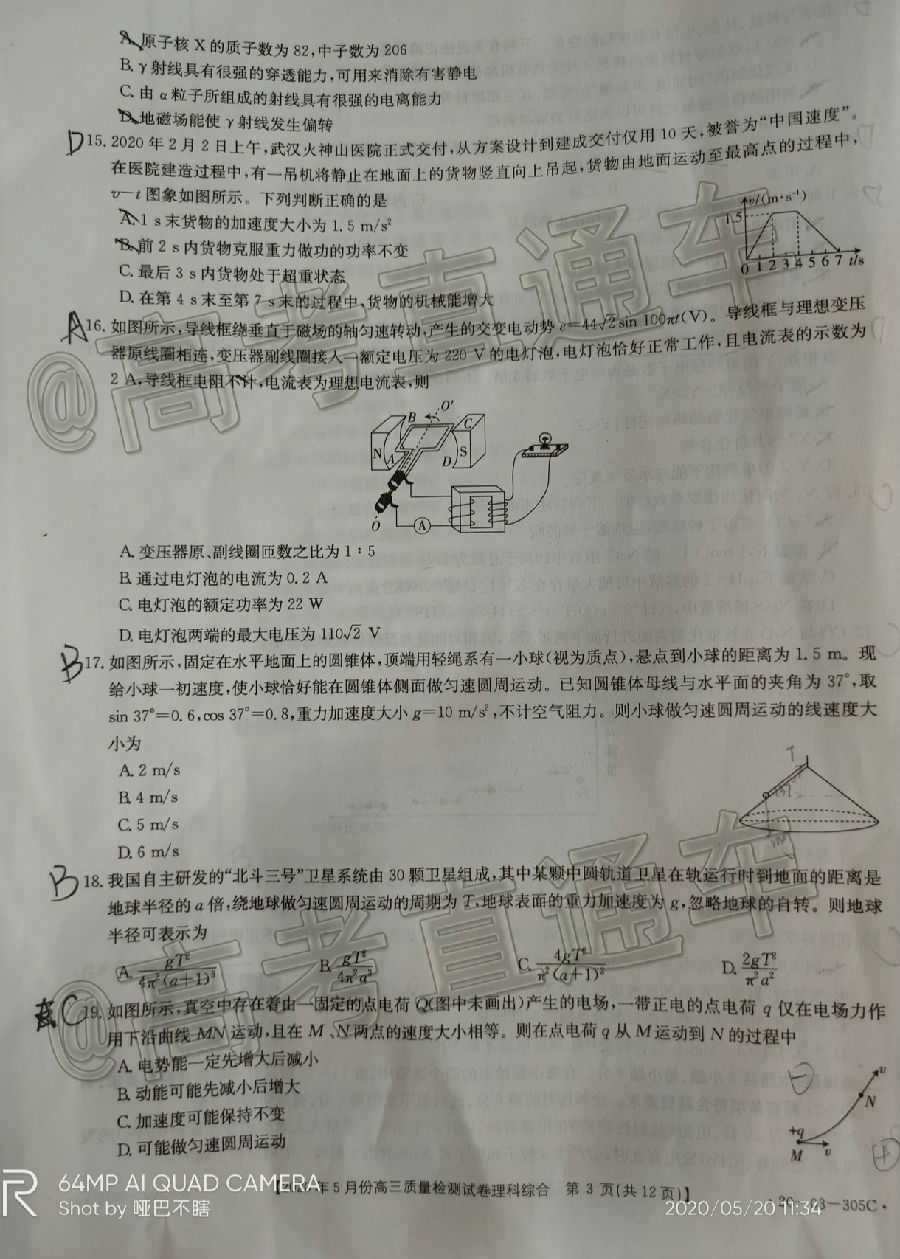 A. 原子核 X 的质子数为 82,中子数为 206
B. γ 射线具有很强的穿透能力,可用来消除有害静电
C. 由 α 粒子所组成的射线具有很强的电离能力
D. 地磁场能使 γ 射线发生偏转
D 15. 2020 年 2 月 2 日上午,武汉火神山医院正式交付,从方案设计到建成交付仅用 10 天,被誉为“中国速度”。
在医院建造过程中,有一吊机将静止在地面上的货物竖直向上吊起,货物由地面运动至最高点的过程中,
v—t 图象如图所示。下列判断正确的是
A. 1 s 末货物的加速度大小为 1.5 m/s²
B. 前 2 s 内货物克服重力做功的功率不变
C. 最后 3 s 内货物处于超重状态
D. 在第 4 s 末至第 7 s 末的过程中,货物的机械能增大
v/(m·s⁻¹)
1.5
0 1 2 3 4 5 6 7 t/s
A 16. 如图所示,导线框绕垂直于磁场的轴匀速转动,产生的交变电动势 e=44√2sin 100πt(V)。导线框与理想变压
器原线圈相连,变压器副线圈接入一额定电压为 220 V 的电灯泡,电灯泡恰好正常工作,且电流表的示数为
2 A,导线框电阻不计,电流表为理想电流表,则
B O′ C
N A D S
O A
A. 变压器原、副线圈匝数之比为 1∶5
B. 通过电灯泡的电流为 0.2 A
C. 电灯泡的额定功率为 22 W
D. 电灯泡两端的最大电压为 110√2 V
B 17. 如图所示,固定在水平地面上的圆锥体,顶端用轻绳系有一小球(视为质点),悬点到小球的距离为 1.5 m。现
给小球一初速度,使小球恰好能在圆锥体侧面做匀速圆周运动。已知圆锥体母线与水平面的夹角为 37°,取
sin 37°=0.6,cos 37°=0.8,重力加速度大小 g=10 m/s²,不计空气阻力。则小球做匀速圆周运动的线速度大
小为
A. 2 m/s
B. 4 m/s
C. 5 m/s
D. 6 m/s
B 18. 我国自主研发的“北斗三号”卫星系统由 30 颗卫星组成,其中某颗中圆轨道卫星在轨运行时到地面的距离是
地球半径的 a 倍,绕地球做匀速圆周运动的周期为 T,地球表面的重力加速度为 g,忽略地球的自转。则地球
半径可表示为
A. gT²/4π²(a+1)³ B. gT²/4π²a³ C. 4gT²/π²(a+1)² D. 2gT²/π²a²
C 19. 如图所示,真空中存在着由一固定的点电荷 Q(图中未画出)产生的电场,一带正电的点电荷 q 仅在电场力作
用下沿曲线 MN 运动,且在 M、N 两点的速度大小相等。则在点电荷 q 从 M 运动到 N 的过程中
A. 电势能一定先增大后减小
B. 动能可能先减小后增大
C. 加速度可能保持不变
D. 可能做匀速圆周运动
v
N
+q
M v
年 5 月份高三质量检测试卷理科综合 第 3 页(共 12 页)】
—305C·
@高考直通车
@高考直通车
64MP AI QUAD CAMERA
Shot by 哑巴不瞎
2020/05/20 11:34